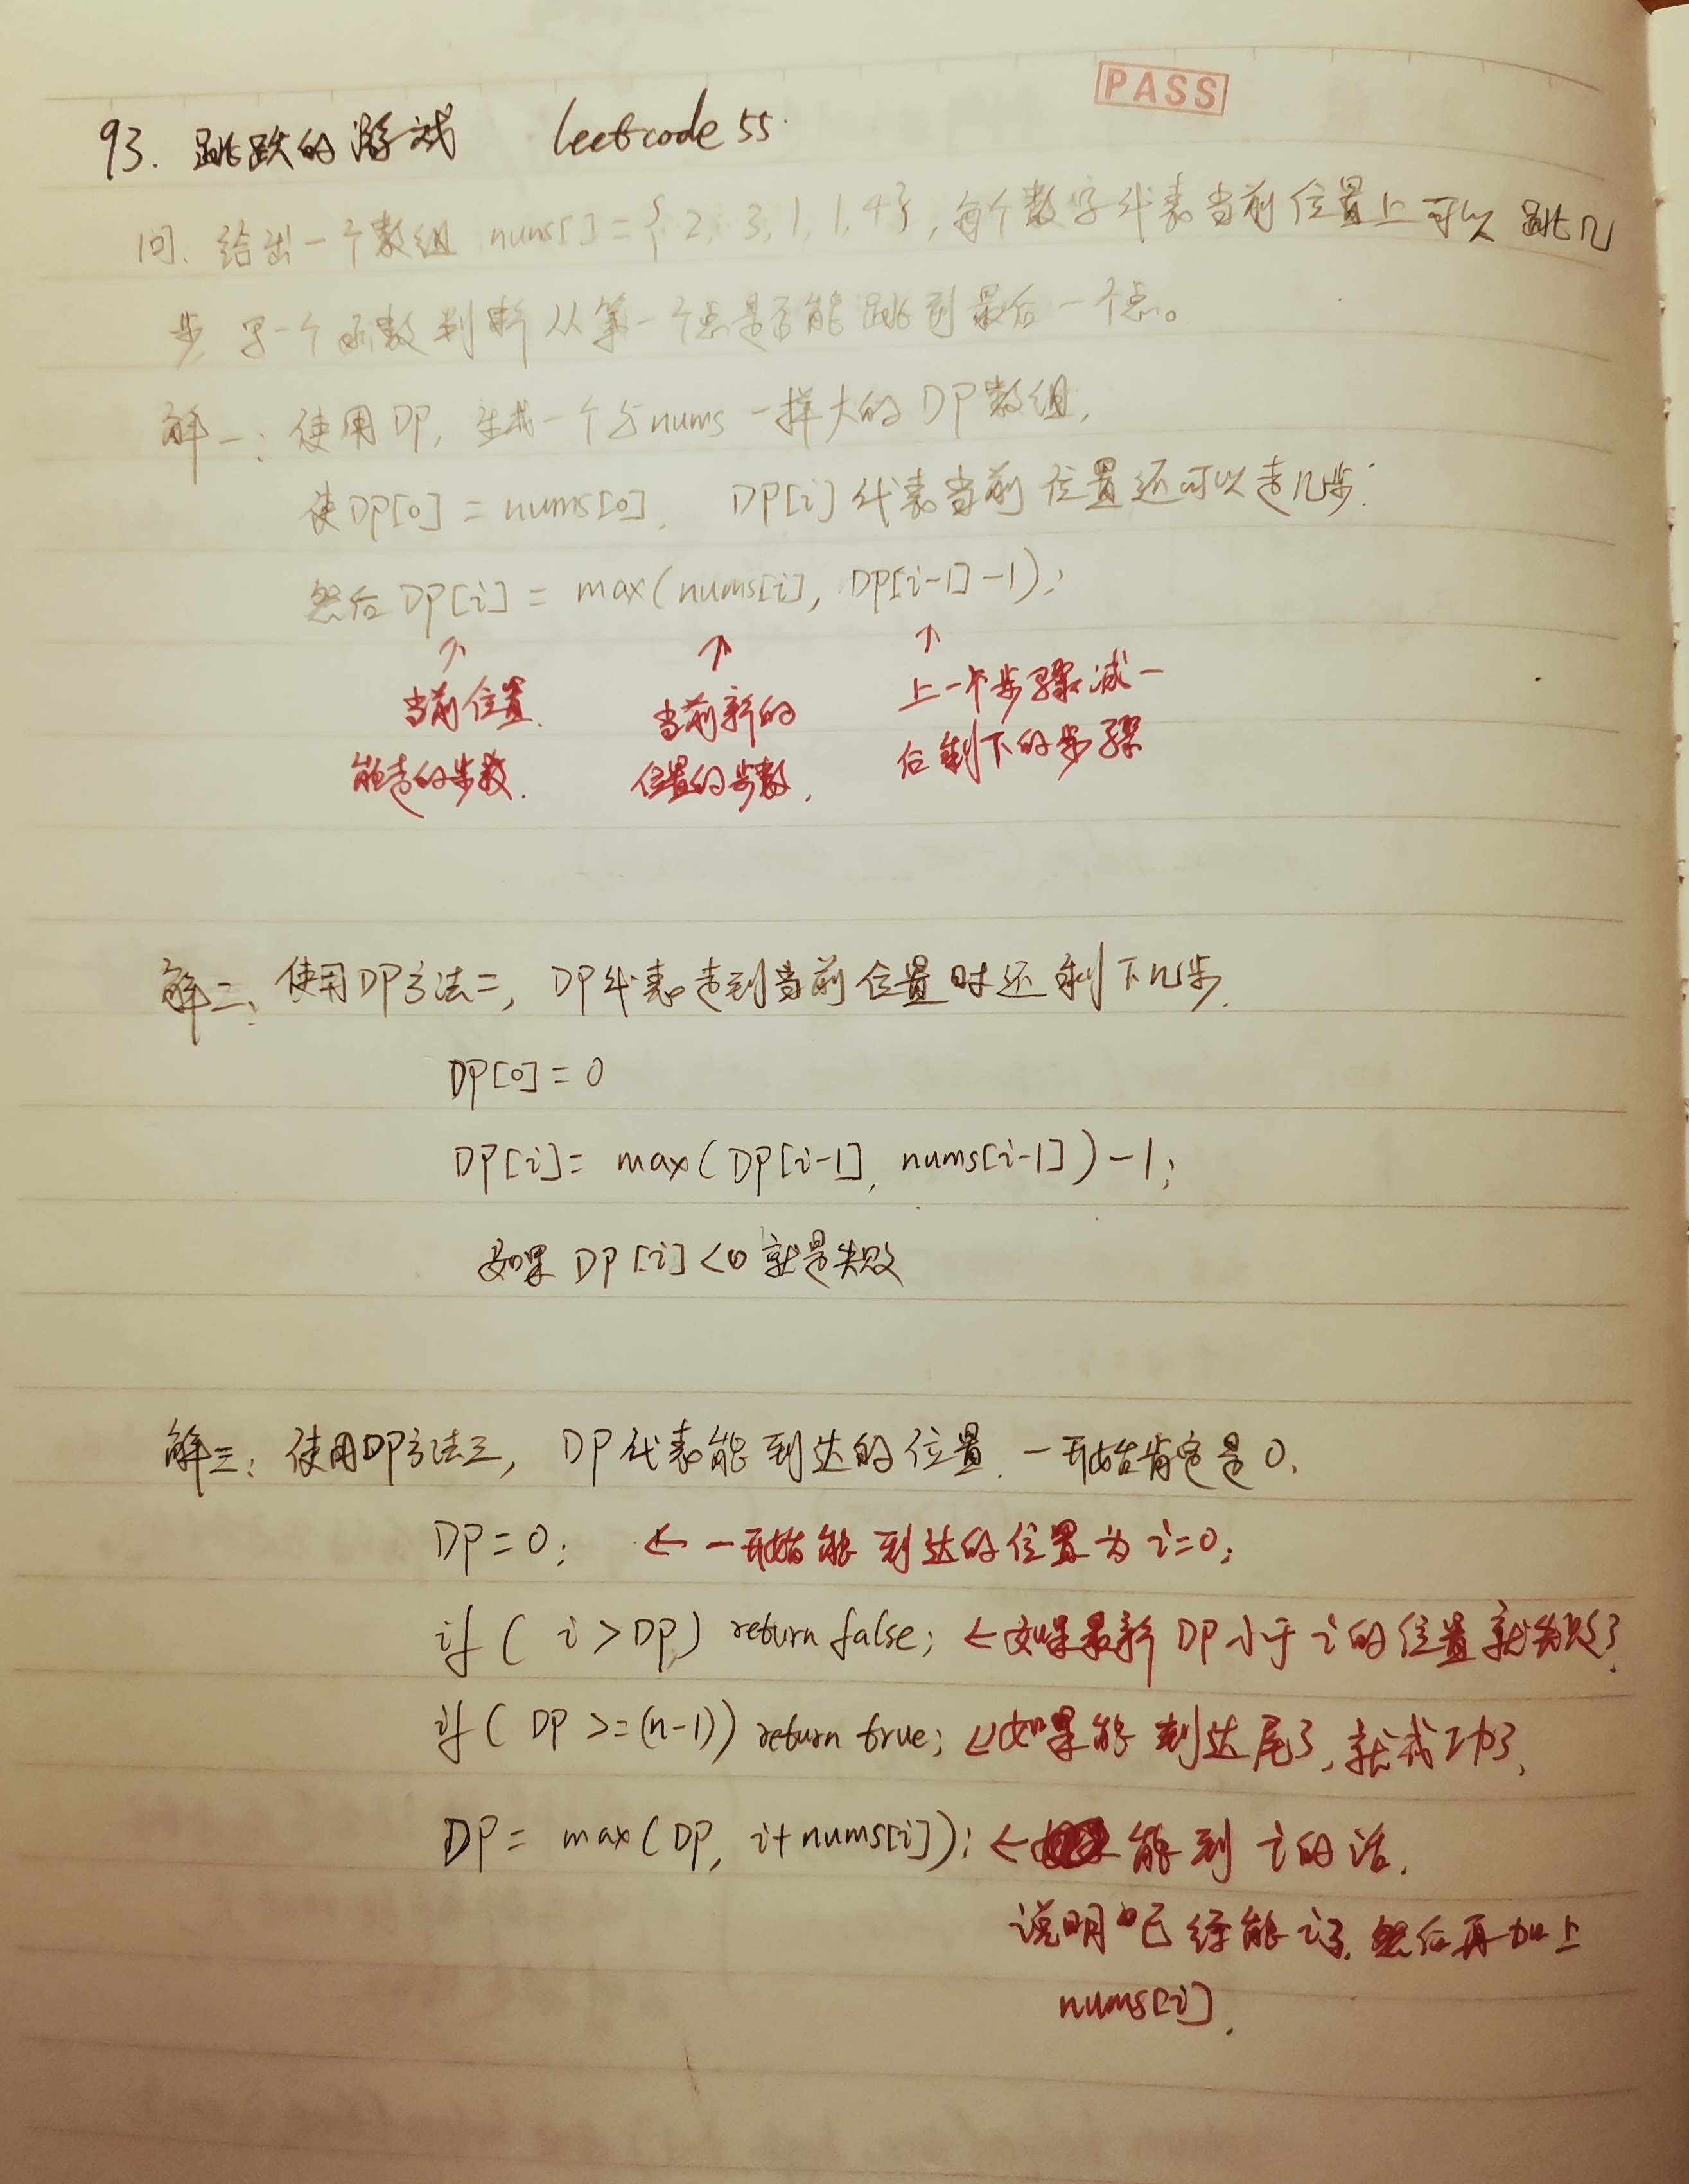 PASS
93. 跳跃的游戏 leetcode 55.
问. 给出一个数组 nums[] = {2, 3, 1, 1, 4}, 每个数字代表当前位置上可以跳几
步 写一个函数判断从第一个点是否能跳到最后一个点。
解一: 使用DP, 生成一个与nums一样大的DP数组,
使DP[0] = nums[0]. DP[i] 代表当前位置还可以走几步.
然后 DP[i] = max(nums[i], DP[i-1]-1);
↑ ↑ ↑
当前位置 当前新的 上一个步骤减一
能走的步数. 位置的步数, 后剩下的步骤
解二、使用DP方法二, DP代表走到当前位置时还剩下几步.
DP[0] = 0
DP[i] = max(DP[i-1], nums[i-1]) - 1;
如果 DP[i] <0 就是失败
解三: 使用DP方法三, DP代表能到达的位置. 一开始肯定是0.
DP = 0; ← 一开始能到达的位置为 i=0;
if ( i > DP) return false; ← 如果最新 DP 小于 i 的位置就失败了.
if ( DP >= (n-1)) return true; ← 如果能到达尾了, 就成功了,
DP = max(DP, i+nums[i]); ← 能到 i 的话.
说明已经能 i 了. 然后再加上
nums[i].